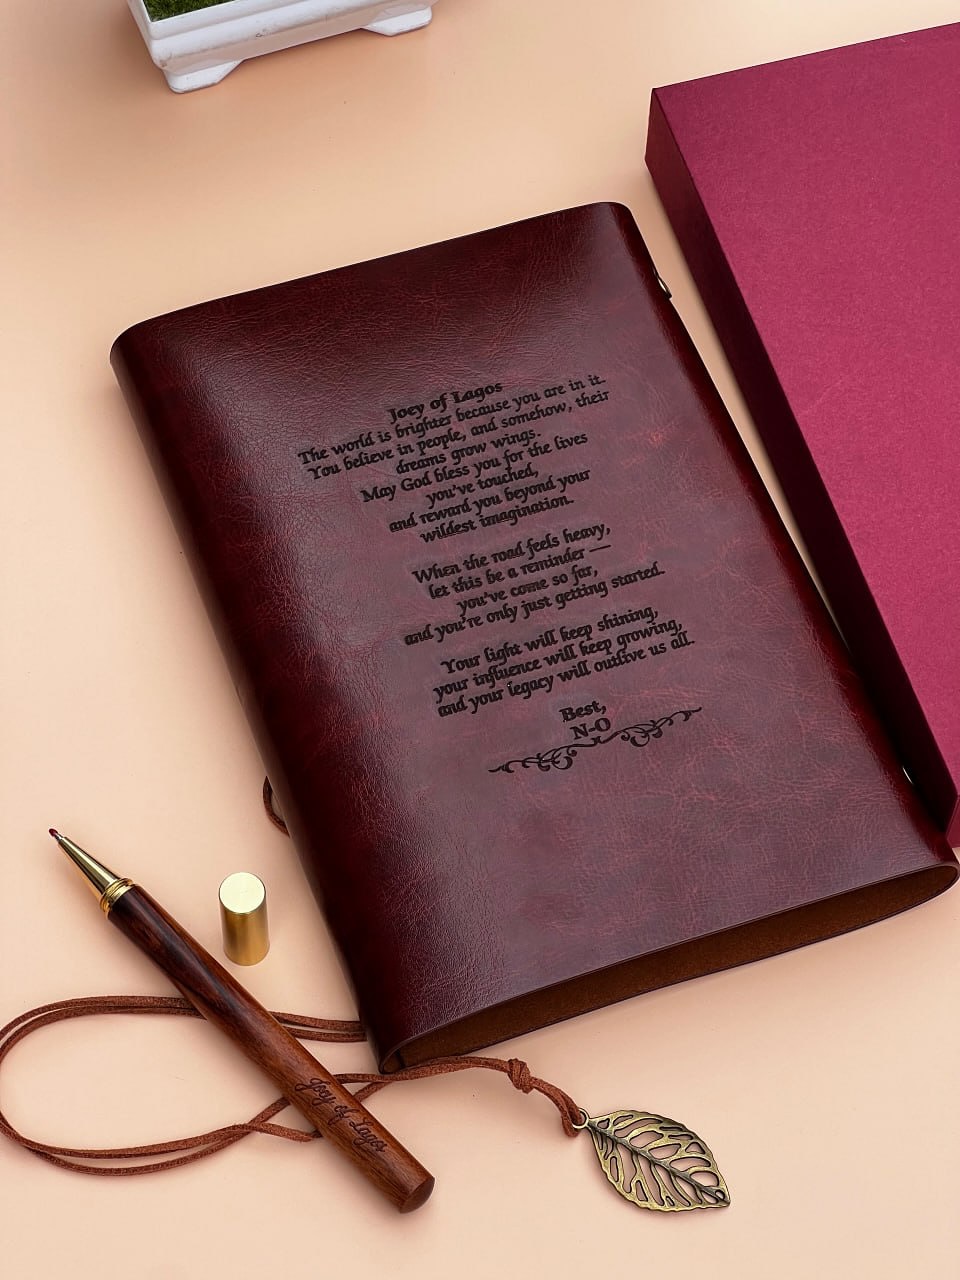 Joey of Lagos
The world is brighter because you are in it.
You believe in people, and somehow, their
dreams grow wings.
May God bless you for the lives
you've touched,
and reward you beyond your
wildest imagination.
When the road feels heavy,
let this be a reminder —
you've come so far,
and you're only just getting started.
Your light will keep shining,
your influence will keep growing,
and your legacy will outlive us all.
Best,
N-O
Joey of Lagos